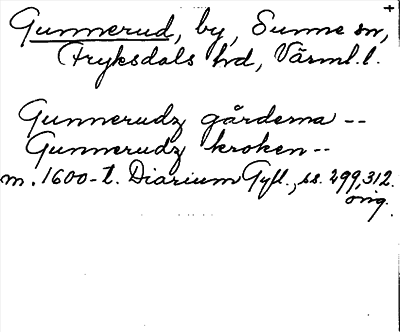 Gunnerud, by, Sunne sn,
Fryksdals hd, Värml.l.
Gunnerudz gårderna --
Gunnerudz kroken --
m. 1600-t. Diarium Gyll., ss. 299, 312.
orig.